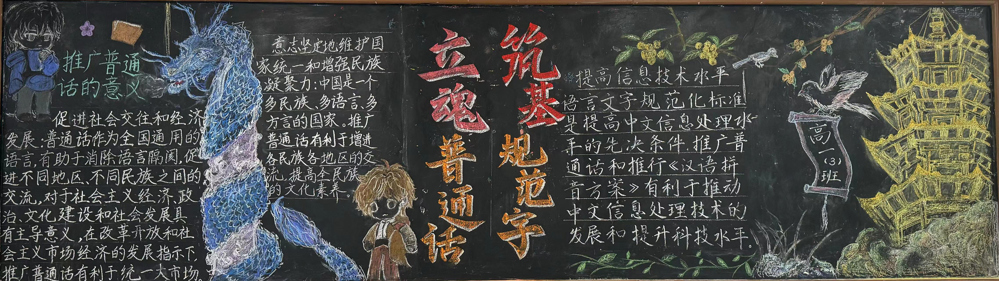 推广普通
话的意义
促进社会交往和经济
发展:普通话作为全国通用的
语言,有助于消除语言隔阂,促
进不同地区、不同民族之间的
交流,对于社会主义经济、政
治、文化、建设和社会发展具
有主导意义,在改革开放和社
会主义市场经济的发展指示下.
推广普通话有利于统一大市场.
意志坚定地维护国
家统一和增强民族
凝聚力:中国是一个
多民族、多语言、多
方言的国家、推广
普通话有利于增进
各民族各地区的交
流、提高全民族
的文化素养.
立魂普通话
筑基规范字
提高信息技术水平
语言文字规范化标准
是提高中文信息处理水
平的先决条件.推广普
通话和推行《汉语拼
音方案》有利于推动
中文信息处理技术的
发展和提升科技水平.
高一(3)班